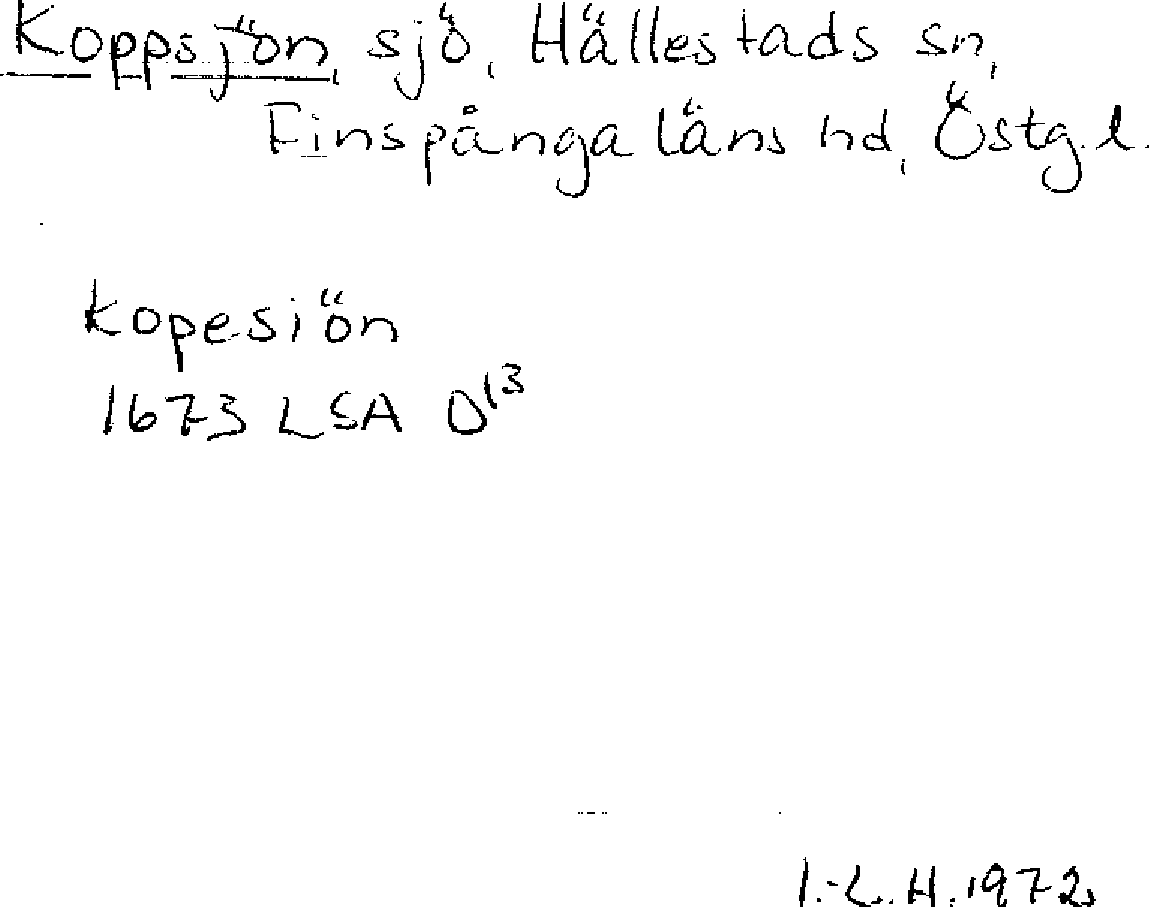 Koppsjön, sjö, Hällestads sn,
Finspånga läns hd, Östg.l.
kopesiön
1673 LSA D13
I.-L.H.1972